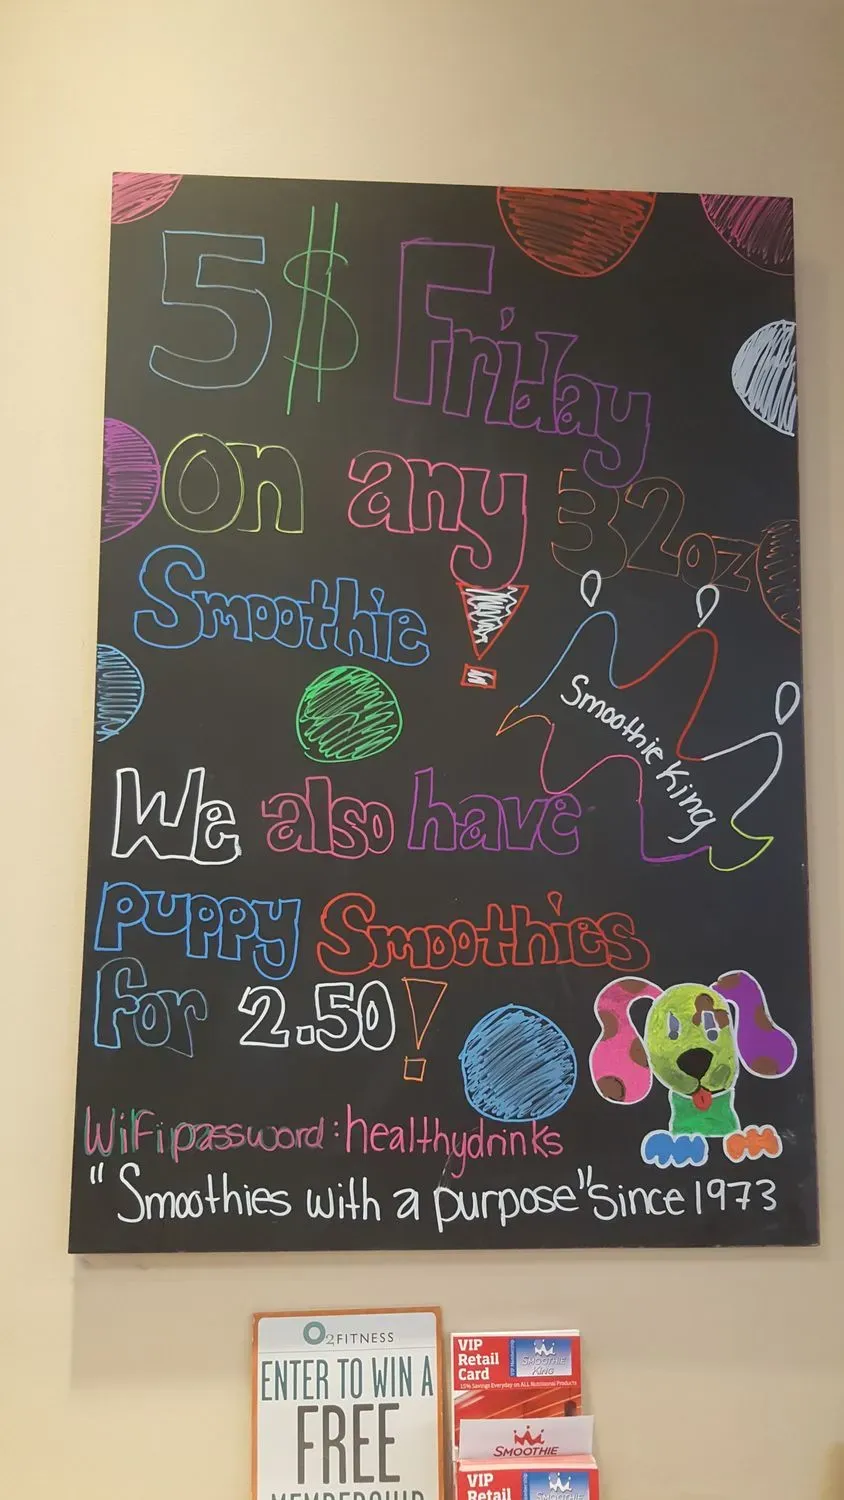 5$ Friday
on any 32oz
Smoothie!
Smoothie King
We also have
puppy Smoothies
for 2.50!
WiFi password: healthydrinks
"Smoothies with a purpose" since 1973
O2FITNESS
ENTER TO WIN A
FREE
MEMBERSHIP
VIP
Retail
Card
VIP Membership
SMOOTHIE
KING
15% Savings Everyday on ALL Nutritional Products
SMOOTHIE
VIP
Retail
SMOOTHIE